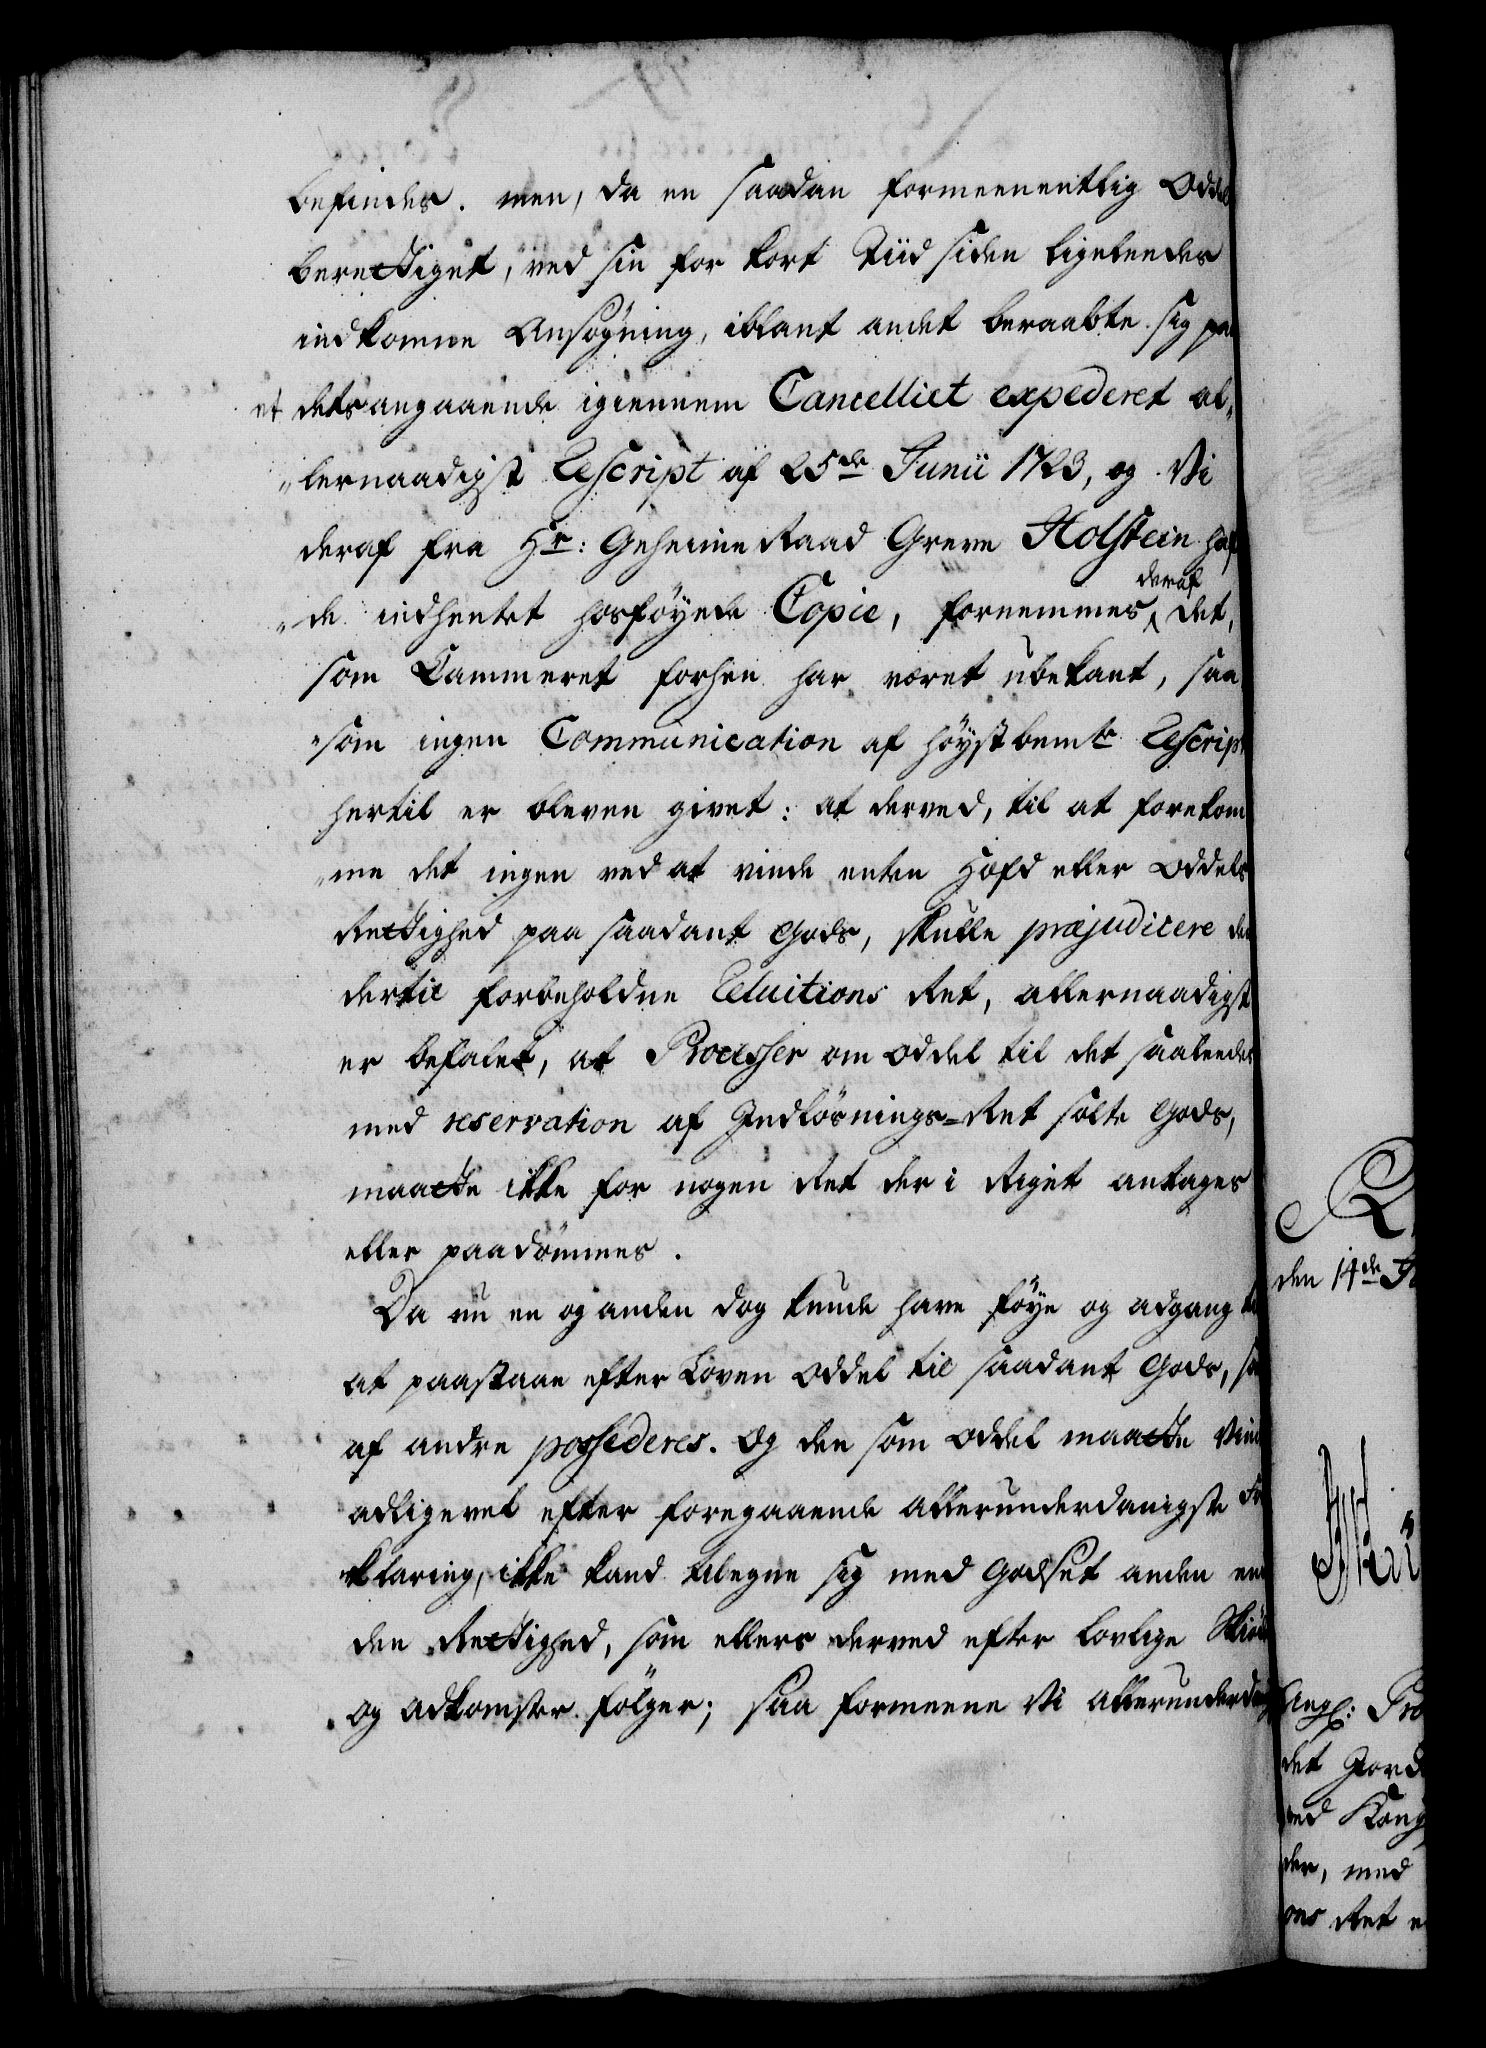 befindes. men, da en saadan formeenentlig Odels
berettiget, ved sin for kort Tiid siden ligeleedes
indkomne Ansøgning, iblant andet beraabte sig paa
et detsangaaende igiennem Cancelliet expederet al„
„lernaadigst Rescript af 25de Junii 1723, og Vi
deraf fra Hr: Geheime Raad Greve Holstein haf
„de indhentet hosføyede Copie, fornemmes deraf det,
som Kammeret forhen har været ubekant, saa
„som ingen Communication af høystbemte Rescript
hertil er bleven givet: at derved, til at forekom
„me det ingen ved at vinde enten Hæfd eller Oddels
Rettighed paa saadant Gods, skulle præjudicere den
dertil forbeholdne Reluitions Ret, allernaadigst
er befalet, at Processer om Oddel til det saaleedes
med reservation af Indløsnings-Ret solte Gods,
maatte ikke for nogen Ret der i Riget antages
eller paadømmes.
Da nu en og anden dog kunde have føye og adgang til
at paastaae efter Loven Oddel til saadant Gods, som
af andre possederes. Og den som Oddel maatte Vinde
alligevel efter foregaaende allerunderdanigste For
„klaring, ikke kand tilegne sig med Godset anden end
den Rettighed, som ellers derved efter lovlige Skiøde
og adkomster følger; saa formeene Vi allerunderdanigst
den 14de
Angl: Pro
det Jord
ved Kong
der, med
ons Ret e